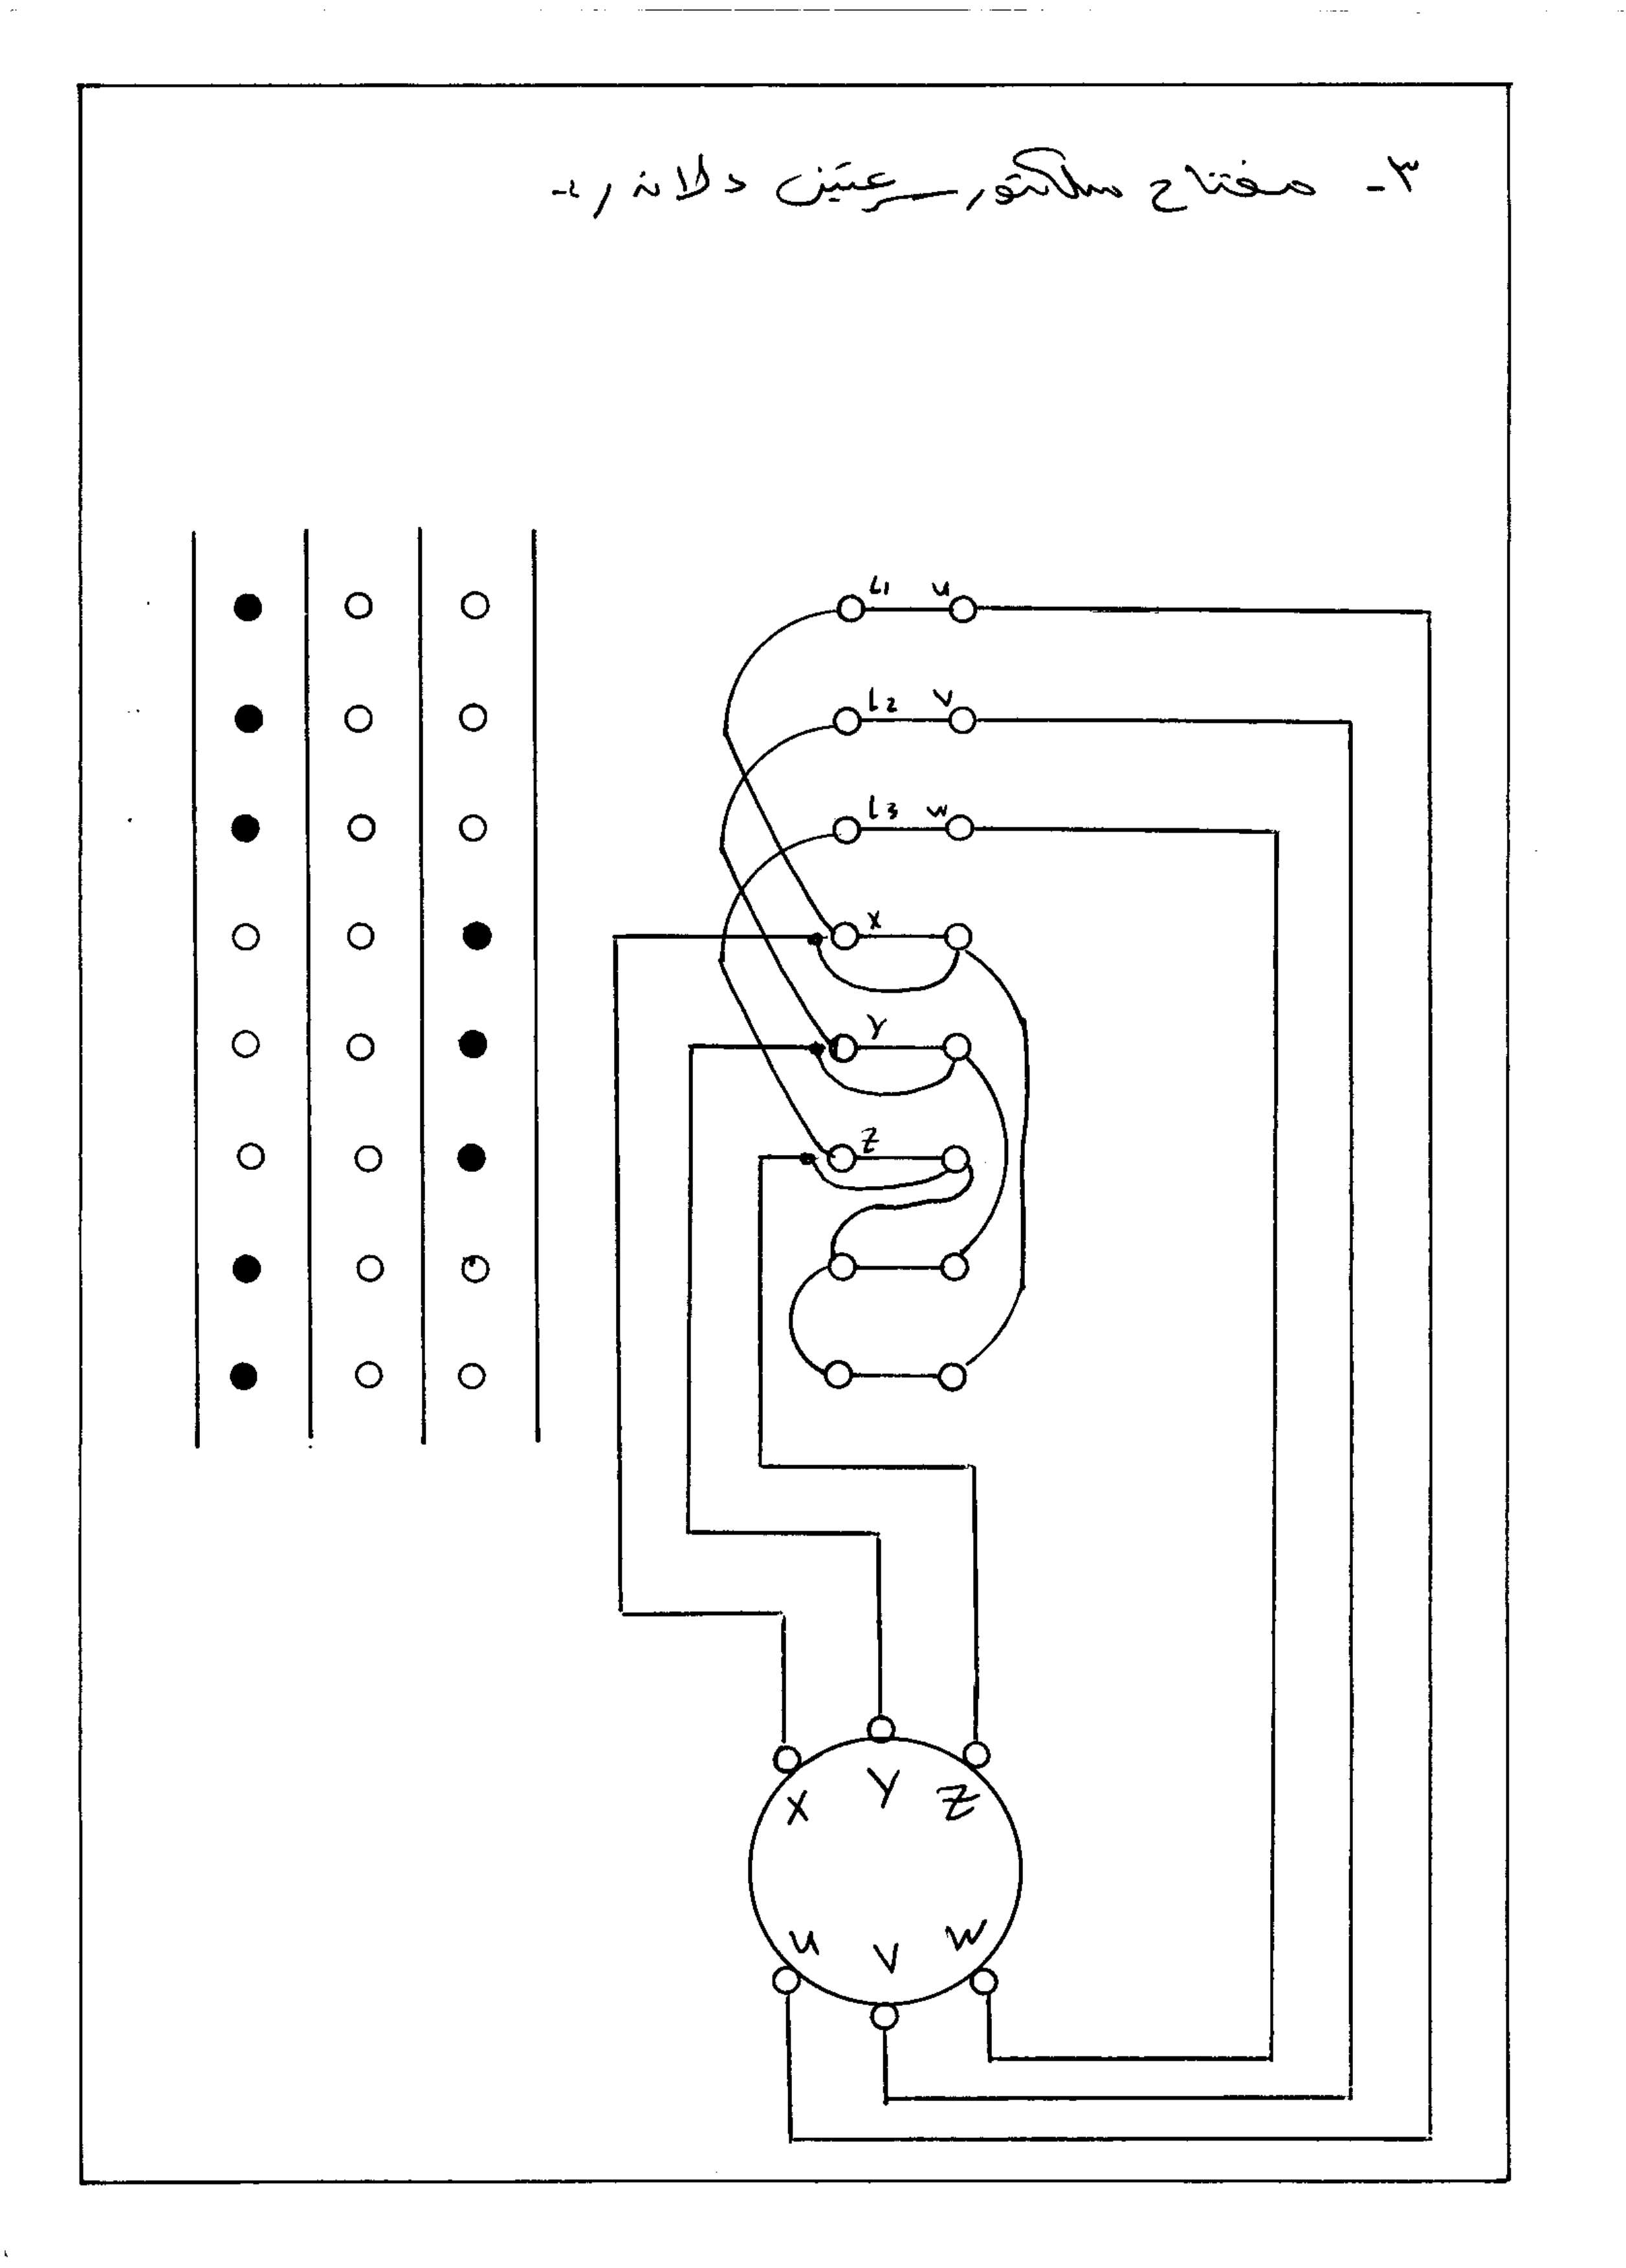 ٣- مفتاح سلكتور سرعتين دلاندر :-
L1 U
L2 V
L3 W
X
Y
Z
X Y Z
U V W